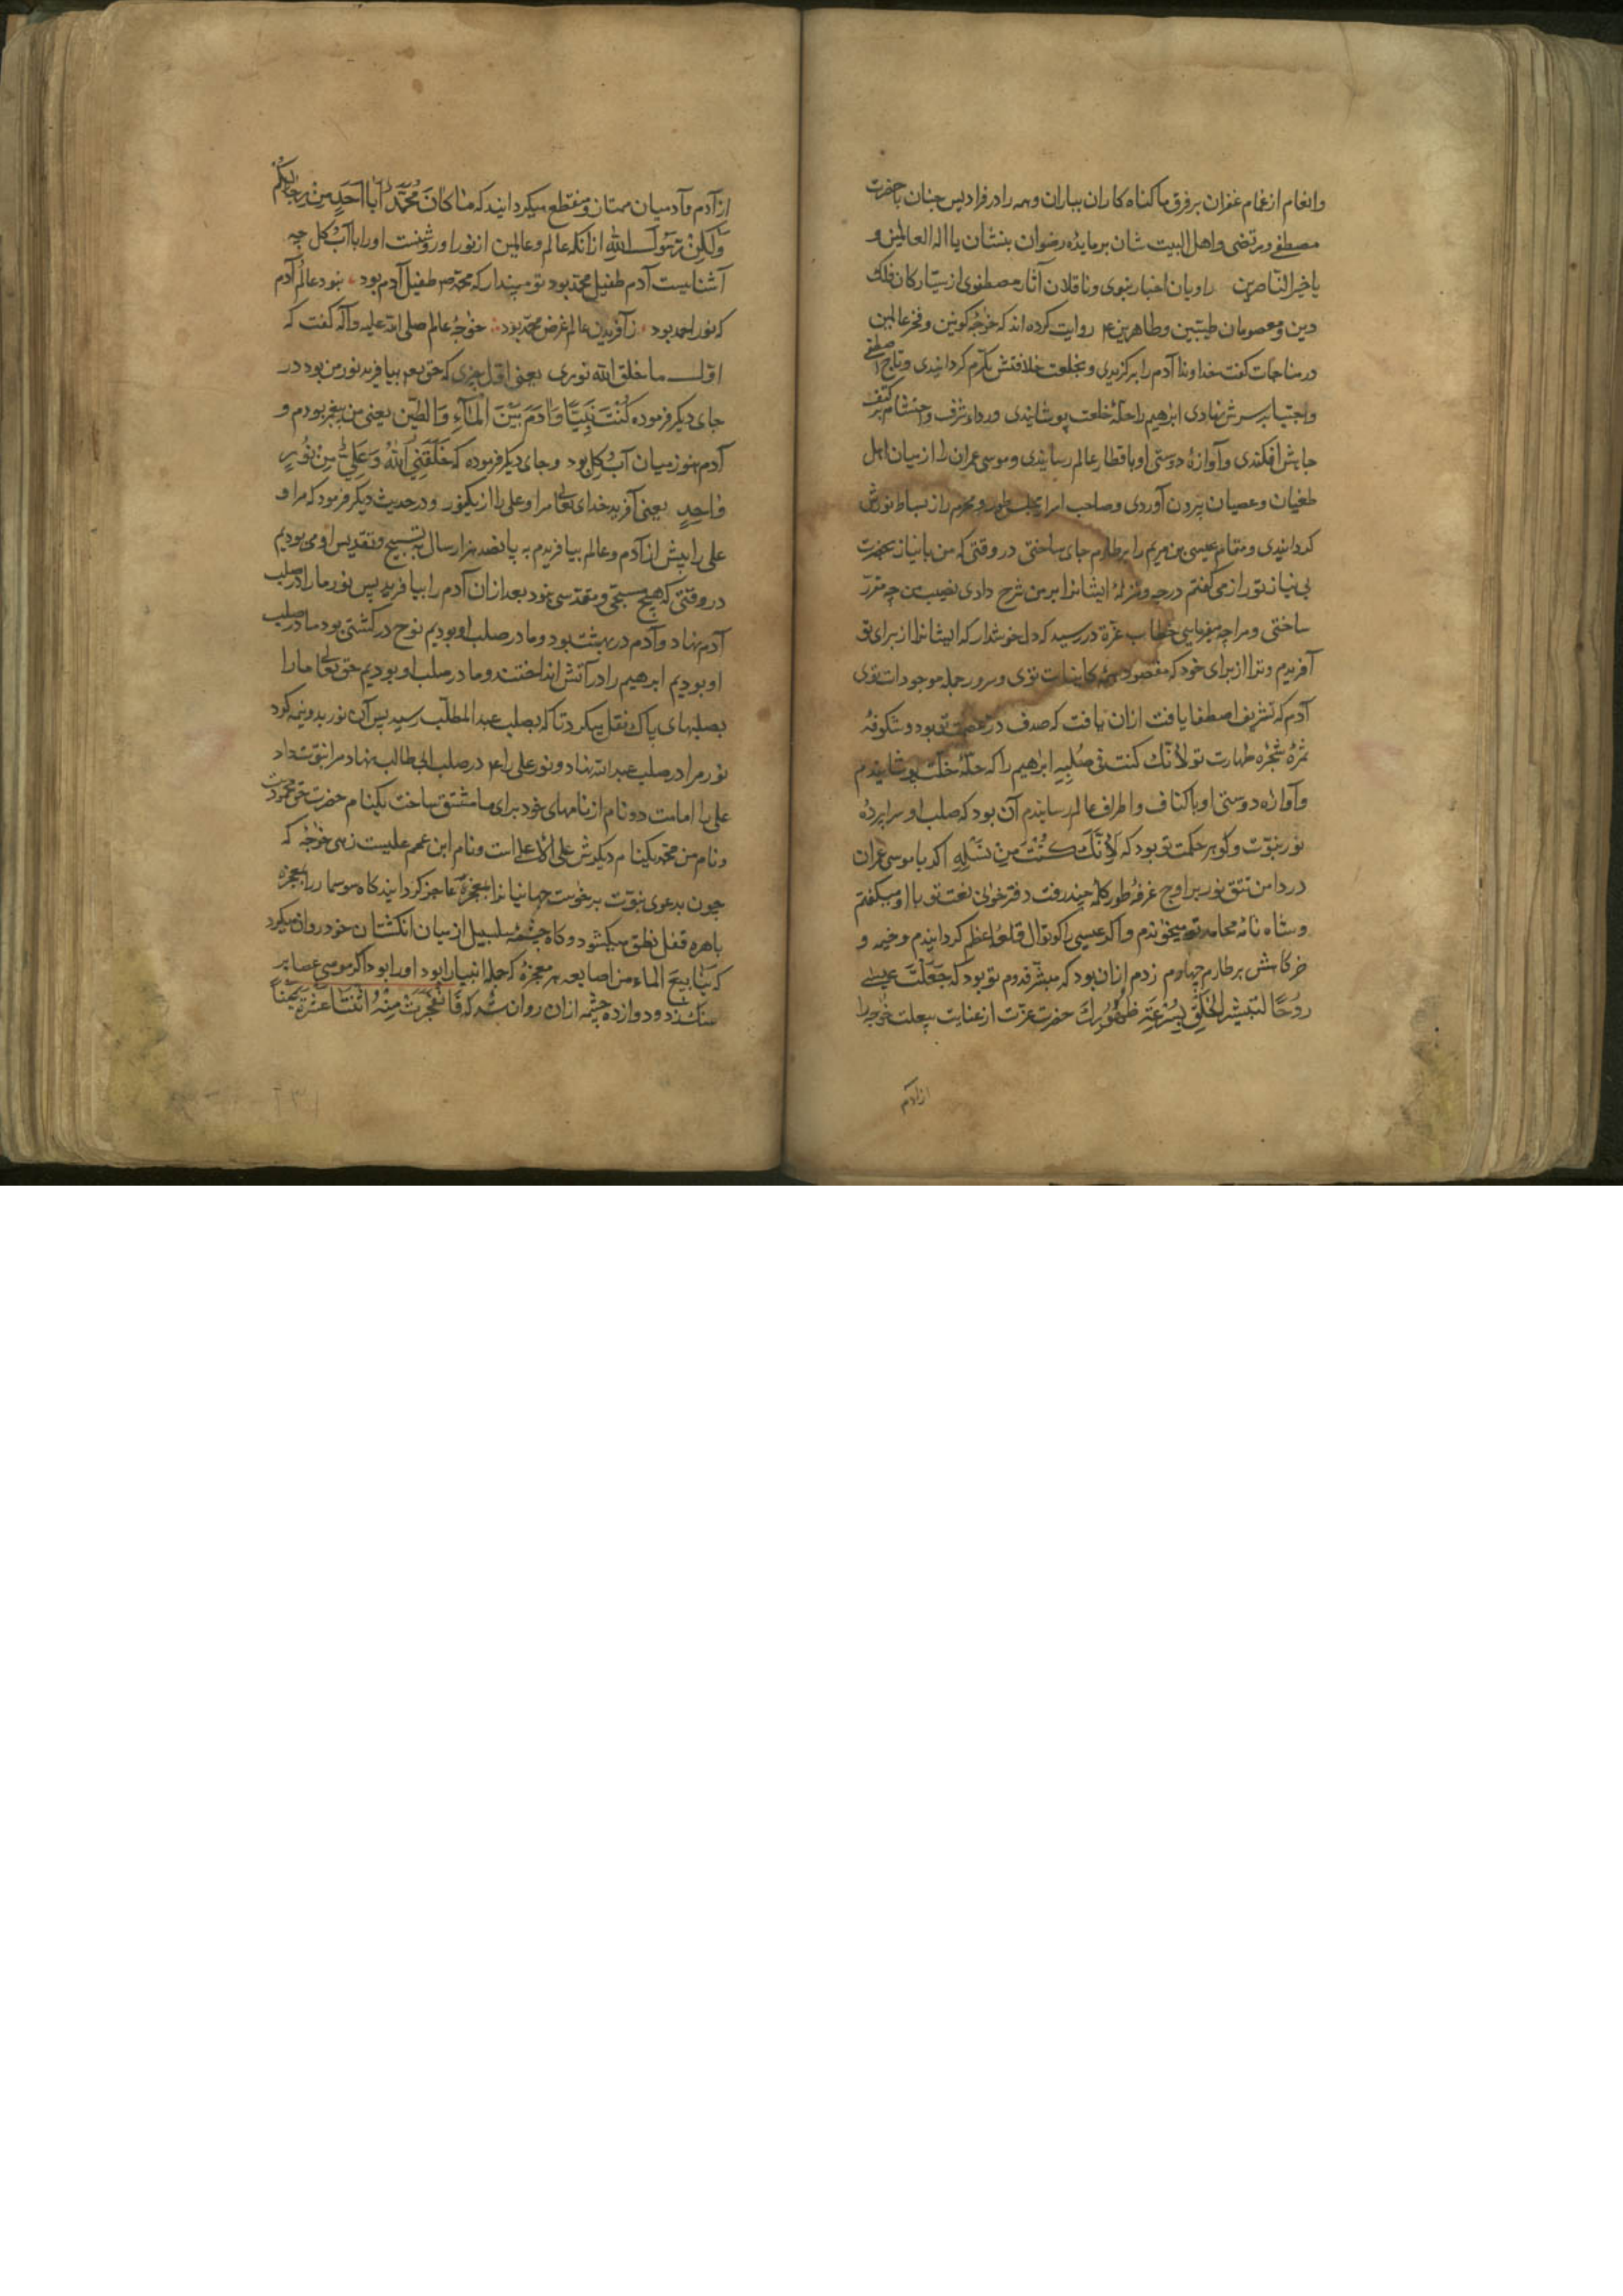 وانعام از غمام غفران بر فرق ما کناه کاران بباران و همه را در فرادیس جنان با حضرت
مصطفی و مرتضی و اهل البیت شان بر مایده رضوان بنشان یا اله العالمین و
یا خیر الناصرین راویان اخبار نبوی و ناقلان آثار مصطفوی از ستارکان فلک
دین و معصومان طیبین و طاهرین ع روایت کرده اند که خوجه کونین و فخر عالمین
در مناجات کفت خداوندا آدم را برکزیدی و بخلعت خلافتش مکرم کردانیدی و تاج اصطفی
واجتبا بر سرش نهادی ابرٰهیم را حلهٔ خلعت پوشانیدی ورداء شرف و احتشام بر کتف
جانش افکندی و آوازهٔ دوستی او باقطار عالم رسانیدی و موسی عمران را از میان اهل
طغیان و عصیان بیرون آوردی و صاحب اسرار مجلس طور و محرم راز بساط نورش
کردانیدی و مقام عیسی بن مریم را بر طارم جای ساختی در وقتی که من با نیاز بحضرت
بی نیاز تو راز می کفتم درجه و منزلهٔ ایشانرا بر من شرح دادی نصیب من چه مقرر
ساختی و مرا چه میفرمایی خطاب عزة در رسید که دل خوشدار که ایشانرا از برای تو
آفریدم و ترا از برای خود که مقصود همهٔ کاینات توی و سرور جمله موجودات توی
آدم که تشریف اصطفا یافت ازان یافت که صدف در عصمت تو بود و شکوفهٔ
ثمرهٔ شجره طهارت تو لانک کنت فی صُلبِهِ ابرٰهیم را که حلّهٔ خلّت پوشانیدم
و آوازه دوستی او باکناف و اطراف عالم رسانیدم آن بود که صلب او سراپردهٔ
نور نبوّت و کوهر حکمت تو بود که لِأنَّكَ كُنْتَ مِنْ نَسْلِهِ اکر با موسی عمران
در دامن تتق نور بر اوج غرفهٔ طور کلمهٔ چند رفت دفتر خوانی نعت تو با او میکفتم
و شاه نامهٔ محامد تو میخواندم واکر عیسی را کوتوال قلعهٔ اعظم کردانیدم و خیمه و
خرکاهش بر طارم چهارم زدم ازان بود که مبشّر قدوم تو بود که جَعَلْتُ عیسی
رُوحًا لتبشیر الخلق بِسُرْعَةِ ظُهُورِكَ حضرت عزّت از عنایت بیعلت خواجه را
از آدم
از آدم و آدمیان ممتاز و منقطع میکرداند که مَا كَانَ مُحَمَّدٌ أَبَا أَحَدٍ مِنْ رِجَالِكُمْ
وَلٰكِنْ رَسُولَ اللّٰهِ ازانکه عالم و عالمین از نور او روشنست او را با آب و کل چه
آشنایست آدم طفیل محمد بود تو مپندار که محمد ص طفیل آدم بود نبود عالم آدم
که نور احمد بود ز آفریدن عالم غرض محمد بود خواجهٔ عالم صلی الله علیه وآله کفت که
اوّل ما خلق الله نوری یعنی اوّل چیزی که حق تع بیافرید نور من بود در
جای دیکر فرموده كُنْتُ نَبِيًّا وَآدَمُ بَيْنَ الْمَاءِ وَالطِّينِ یعنی من پیغمبر بودم و
آدم هنوز میان آب و کل بود و جای دیکر فرموده که خَلَقَنِي اللّٰهُ وَعَلِيٌّ مِنْ نُورٍ
وَاحِدٍ یعنی آفرید خدای تعالی مرا و علی را از یکنور و در حدیث دیکر فرمود که مرا و
علی را پیش از آدم و عالم بیافریدم به پانصد هزار سال به تسبیح و تقدیس او می بودیم
در وقتی که هیچ مسبّحی و مقدسی نبود بعد ازان آدم را بیافرید پس نور ما را در صلب
آدم نهاد و آدم در بهشت بود و ما در صلب او بودیم نوح در کشتی بود ما در صلب
او بودیم ابرهیم را در آتش انداختند و ما در صلب او بودیم حق تعالی ما را
بصلبهای پاک نقل میکرد تا که بصلب عبد المطلب رسید پس آن نور بدو نیمه کرد
نور مرا در صلب عبد الله نهاد و نور علی را ع در صلب ابی طالب نهاد مرا نبوّت داد
علی را امامت دو نام از نامهای خود برای ما مشتق ساخت یکنام حضرت حق محمودست
و نام من محمد یکنام دیکرش علی الاعلی است و نام ابن عمم علیست زهی خواجه که
چون بدعوی نبوّت برخواست جهانیانرا بمعجزهٔ عاجز کردانید کاه سوسمار را بمعجزه
باهره قفل نطق میکشود و کاه چشمهٔ سلسبیل از میان انکشتان خود روان میکرد
که ینابیع الماء من اصابعه هر معجزهٔ که جمله انبیا را بود او را بود اکر موسی عصا بر
سنک زد و دوازده چشمه ازان روان شد که فَانْفَجَرَتْ مِنْهُ اثْنَتَا عَشْرَةَ عَيْنًا